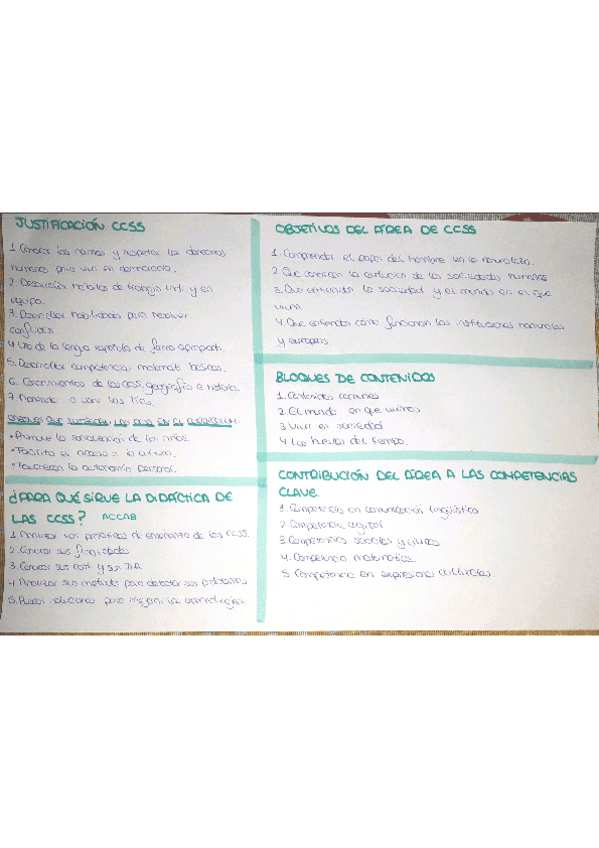 JUSTIFICACIÓN CCSS
1. Conocer las normas y respetar los derechos
humanos para vivir en democracia.
2. Desarrollar hábitos de trabajo ind. y en
equipo.
3. Desarrollar habilidades para resolver
conflictos
4. Uso de la lengua española de forma apropiada.
5. Desarrollar competencias matemát. básicas.
6. Conocimientos de las CCSS, geografía e historia
7. Aprender a usar las TICs.
RAZONES QUE JUSTIFICAN LAS CCSS EN EL CURRICULUM.
• Promueve la socialización de los niños.
• Facilita el acceso a la cultura.
• Favorecen la autonomía personal.
¿PARA QUÉ SIRVE LA DIDÁCTICA DE
LAS CCSS? ACCAB
1. Analizar las prácticas de enseñanza de las CCSS.
2. Conocer sus finalidades
3. Conocer sus cont. y sus
4. Analizar sus métodos para detectar sus problemas
5. Buscar soluciones para mejorar los aprendizajes.
OBJETIVOS DEL ÁREA DE CCSS
1. Comprender el papel del hombre en la naturaleza.
2. Que conozcan la evolución de las sociedades humanas
3. Que entiendan la sociedad y el mundo en el que
viven.
4. Que entiendan cómo funcionan las instituciones nacionales
y europeas.
BLOQUES DE CONTENIDOS
1. Contenidos comunes
2. El mundo en que vivimos
3. Vivir en sociedad
4. Las huellas del tiempo.
CONTRIBUCIÓN DEL ÁREA A LAS COMPETENCIAS
CLAVE.
1. Competencia en comunicación lingüística
2. Competencia digital
3. Competencias sociales y cívicas
4. Competencia matemática.
5. Competencia en expresiones culturales.